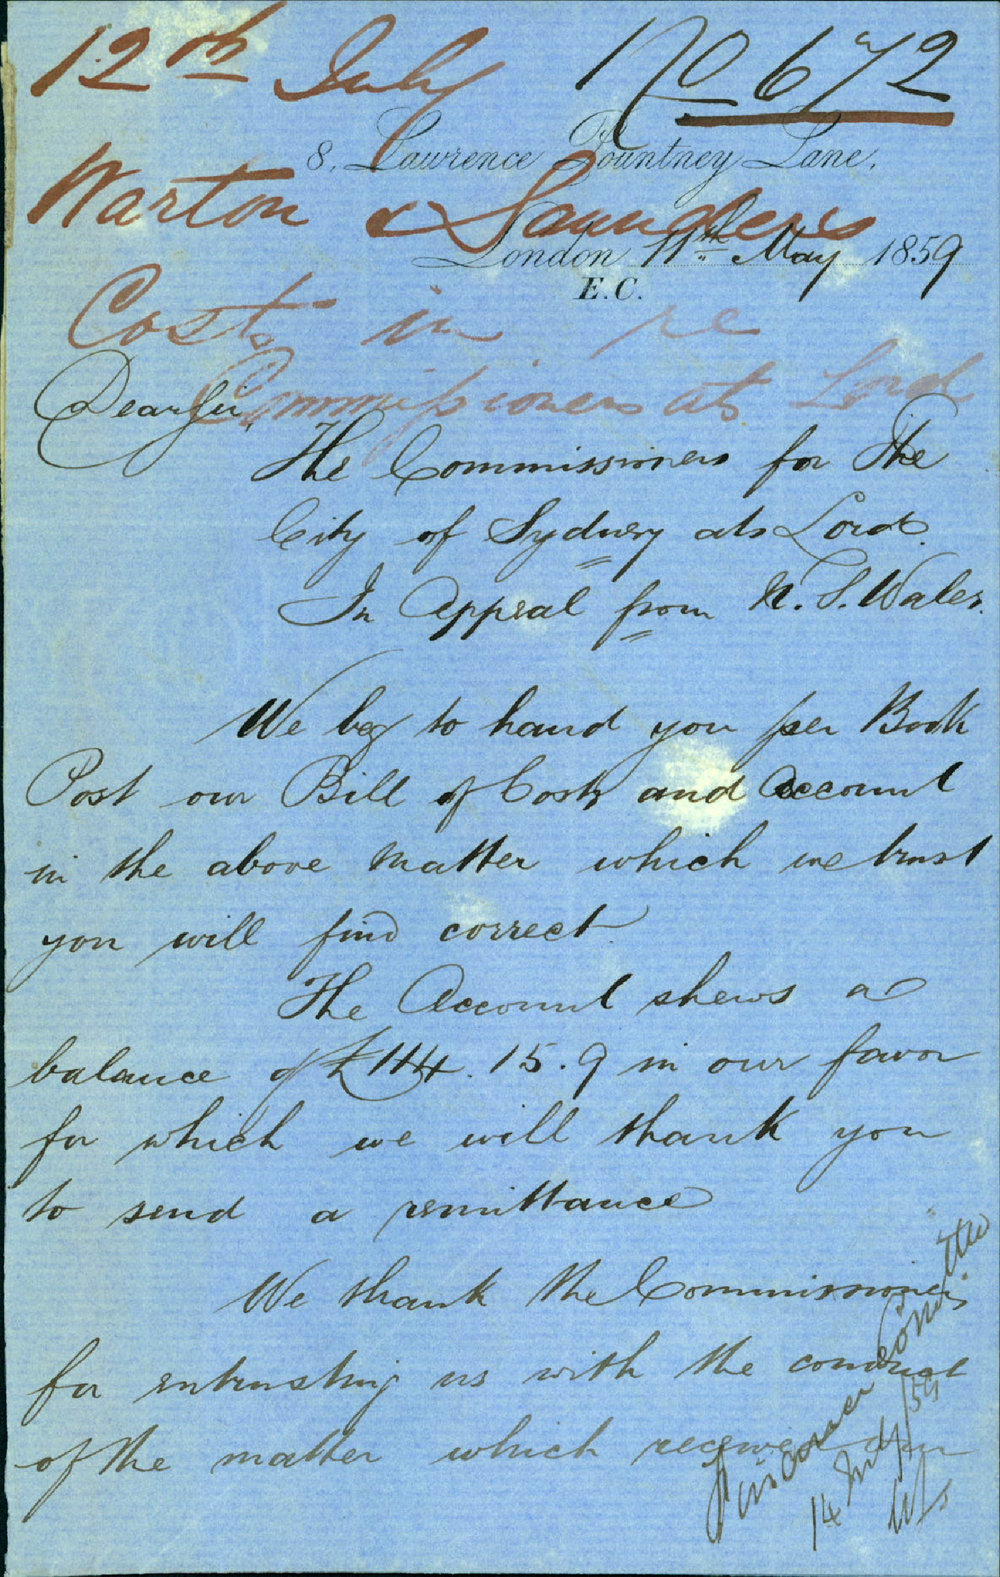 12th July No 672
8, Lawrence Pountney Lane,
Warton & Saunders
London 11th May 1859
E.C.
Costs in re
Commissioners ats Lord
Dear Sir,
The Commissioners for The
City of Sydney ats Lord.
In Appeal from N. S. Wales.
We beg to hand you per Book
Post our Bill of Costs and Account
in the above Matter which we trust
you will find correct
The Account shews a
balance of £114. 15. 9 in our favor
for which we will thank you
to send a remittance
We thank the Commissioners
for entrusting us with the conduct
of the matter which received our
Finance Committee
14 July/59